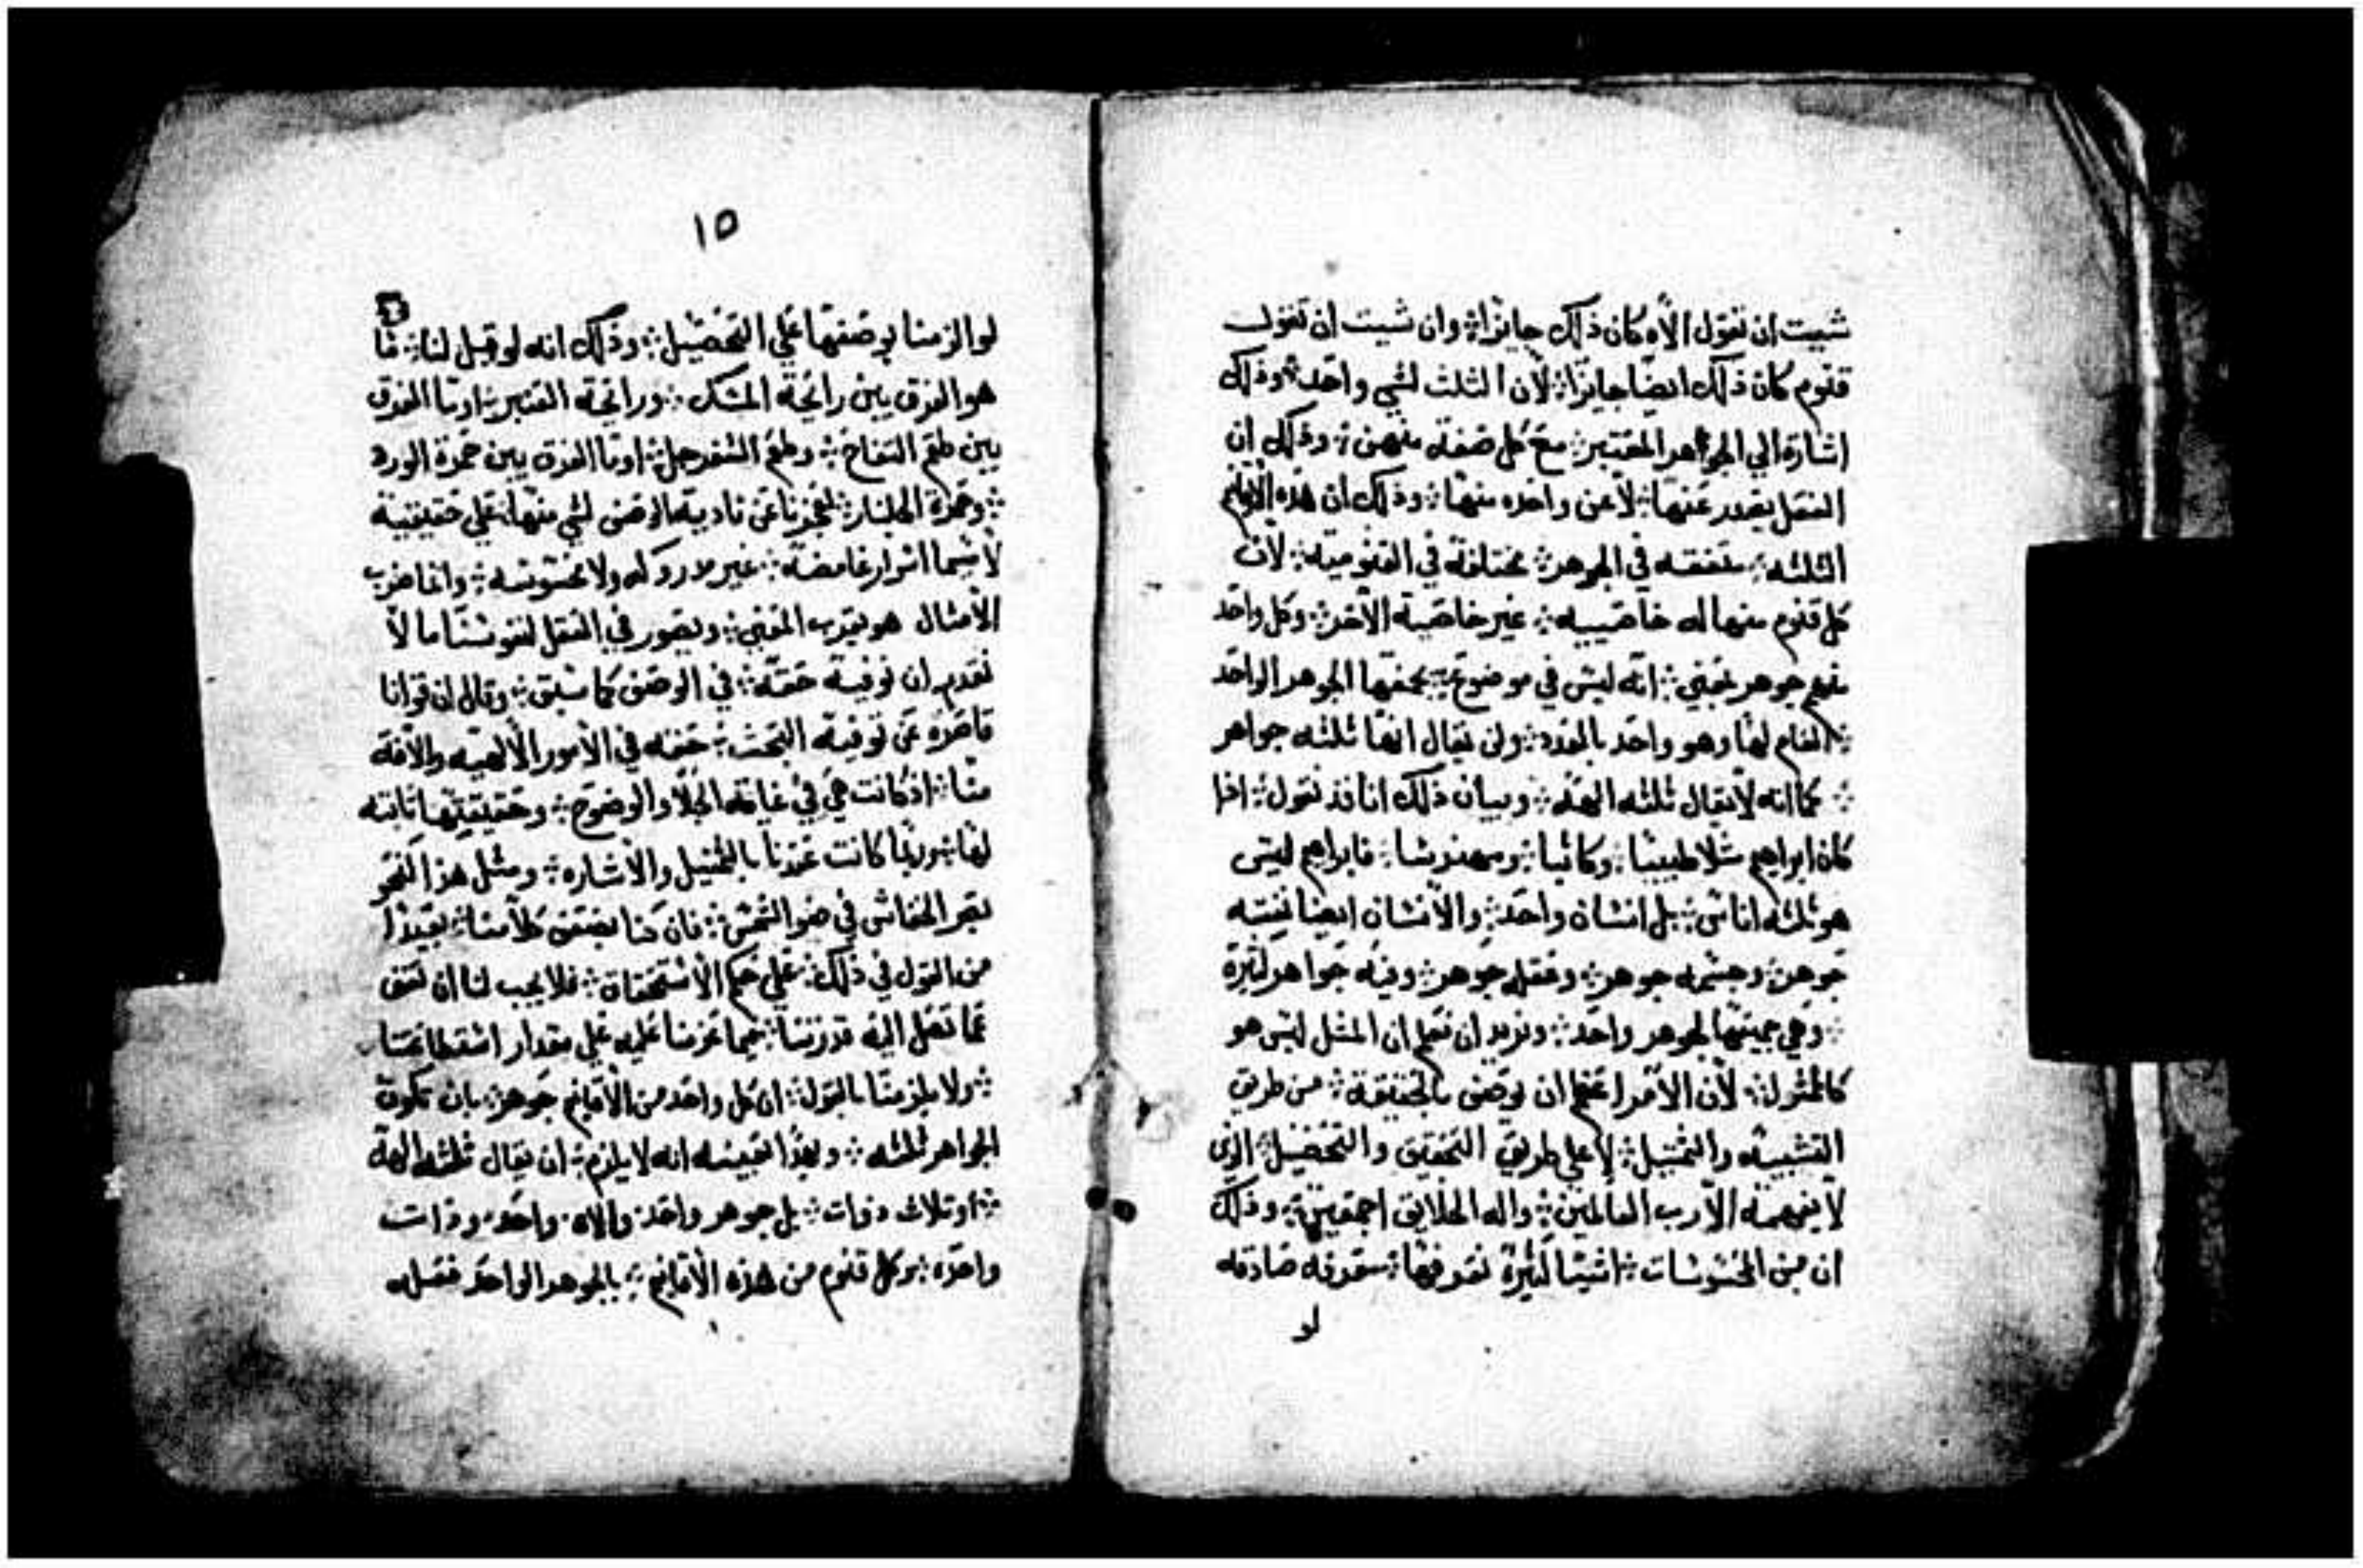 شيت ان نقول الاه كان ذلك جايزا ⁘ وان شيت ان تقول
قنوم كان ذلك ايضا جايزا ⁘ لان الثلث لشي واحد ⁘ وذلك
اشارة الي الجوهر المعتبر ⁘ مع كل صفة منهن ⁘ وذلك ان
الفعل يصدر عنها ⁘ لا عن واحده منها ⁘ وذلك ان هذه الاقانيم
الثلثه ⁘ متفقه في الجوهر ⁘ مختلفة في القنومية ⁘ لان
كل قنوم منها له خاصييه ⁘ غير خاصية الاخر ⁘ وكل واحد
منهم جوهر نعني ⁘ انه ليس في موضوع ⁘ يجمعها الجوهر الواحد
⁘ العام لها وهو واحد بالعدد ⁘ ولن يقال انها ثلثه جواهر
⁘ كما انه لا يقال ثلثه الهه ⁘ وبيان ذلك انا قد نقول ⁘ اذا
كان ابراهيم مثلا طبيبا ⁘ وكاتبا ⁘ ومهندسا ⁘ فابراهيم ليس
هو ثلثه اناس ⁘ بل انسان واحد ⁘ والانسان ايضا نفسه
جوهر ⁘ وجسمه جوهر ⁘ وعقله جوهر ⁘ وفيه جواهر كثيرة
⁘ وهي جميعها لجوهر واحد ⁘ ونريد ان نعلم ان المثل ليس هو
كالممثول ⁘ لان الامر اعظم ان يوصف بالحقيقة ⁘ من طريق
التشبيه والتمثيل ⁘ لا علي طريق التحقيق والتحصيل ⁘ الذي
لا يفهمه الا رب العالمين ⁘ واله الخلايق اجمعين ⁘ وذلك
ان من المحسوسات ⁘ اشيا كثيرة نعرفها ⁘ معرفه صادقه
لو
١٥
لو الزمنا بوصفها علي التحصيل ⁘ وذلك انه لو قيل لنا ⁘ ما
هو الفرق بين رائحة المسك ⁘ ورائحة العنبر ⁘ او ما الفرق
بين طعم التفاح ⁘ وطعم السفرجل ⁘ او ما الفرق بين حمرة الورد
⁘ وحمرة الجلنار ⁘ لعجزنا عن تادية الوصف لشي منها علي حقيقية
لا سيما اسرار غامضة ⁘ غير مدروكه ولا محسوسه ⁘ وانما ضرب
الامثال هو يقرب المعني ⁘ ويصور في العقل لنفوسنا ما لا
نقدر ان نوفية حقه ⁘ في الوصف كما سبق ⁘ وقال ان قوانا
قاصره عن توفية البحث ⁘ حقه في الامور الالهيه والافة
منا ⁘ اذ كانت هي في غاية الجلا والوضوح ⁘ وحقيقتها ثابته
لها ⁘ وربما كانت عندنا بالتمثيل والاشاره ⁘ ومثل هذا النحو
بصر الخفاش في ضو الشمس ⁘ فان كنا بضعف كلامنا ⁘ بعيدا
من القول في ذلك ⁘ علي حكم الاستحقاق ⁘ فلا يجب لنا ان نقف
عما تصل اليه قدرتنا ⁘ فيما عزمنا عليه علي مقدار استطاعتنا
⁘ ولا يلزمنا بالقول ⁘ ان كل واحد من الاقانيم جوهر ⁘ بان تكون
الجواهر ثلثه ⁘ وبهذا بعينه انه لا يلزم ⁘ ان يقال ثلثه الهة
⁘ او ثلاث ذوات ⁘ بل جوهر واحد ⁘ والاه واحد ⁘ وذات
واحده ⁘ وكل قنوم من هذه الاقانيم ⁘ بالجوهر الواحد فعله